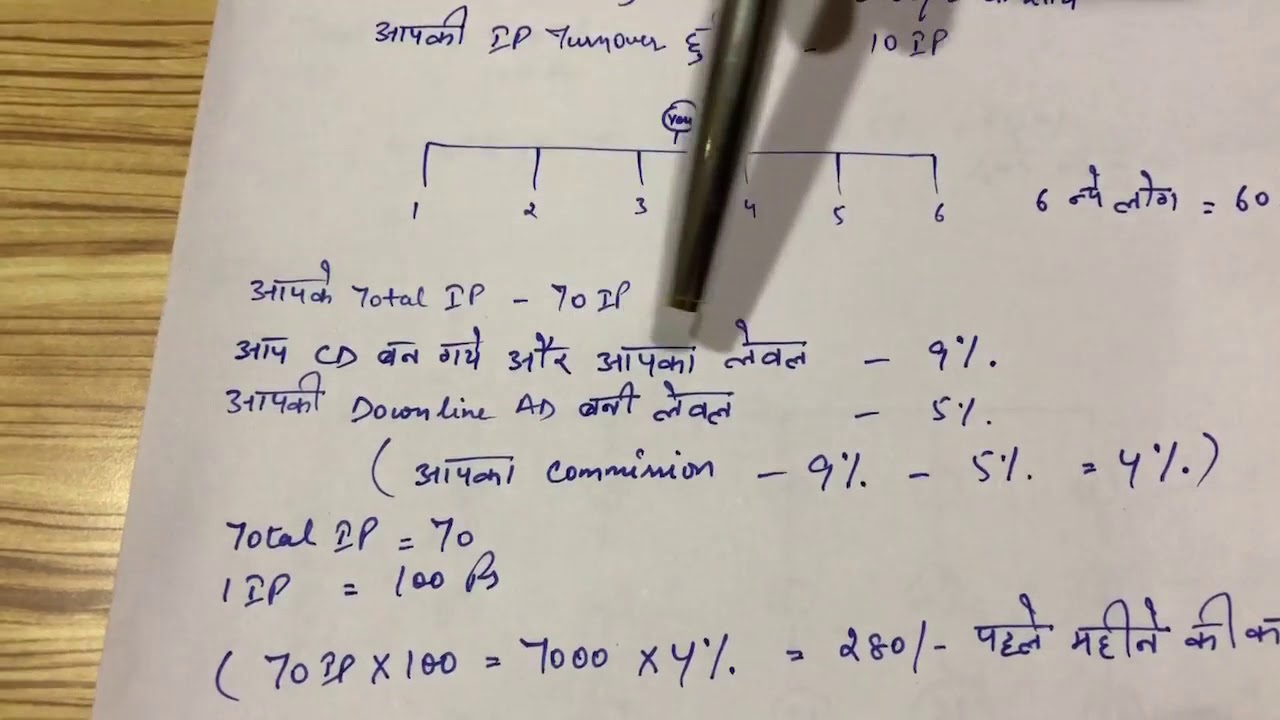 आपकी IP Turnover - 10 IP
You
1 2 3 4 5 6
6 नये लोग = 60
आपके Total IP - 70 IP
आप CD बन गये और आपका लेवल - 9%.
आपकी Downline AD बनी लेवल - 5%.
( आपका Commission - 9%. - 5%. = 4%. )
Total IP = 70
1 IP = 100 Rs
( 70 IP X 100 = 7000 X 4%. = 280/- पहले महीने की